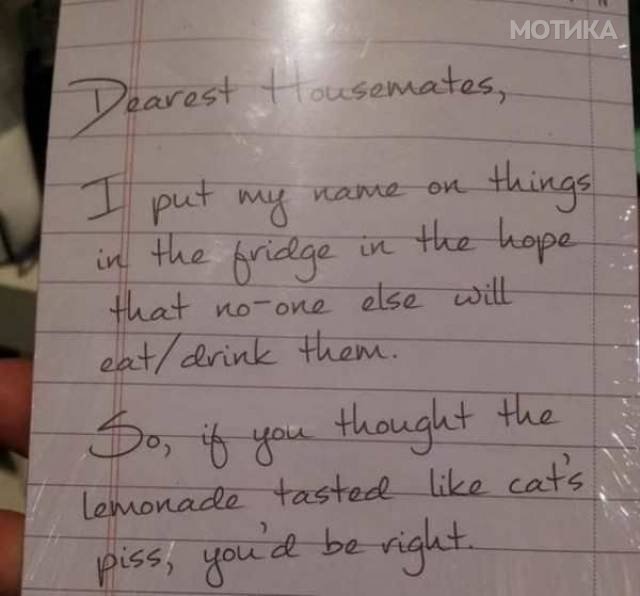 МОТИКА
Dearest Housemates,
I put my name on things
in the fridge in the hope
that no-one else will
eat/drink them.
So, if you thought the
lemonade tasted like cat's
piss, you'd be right.